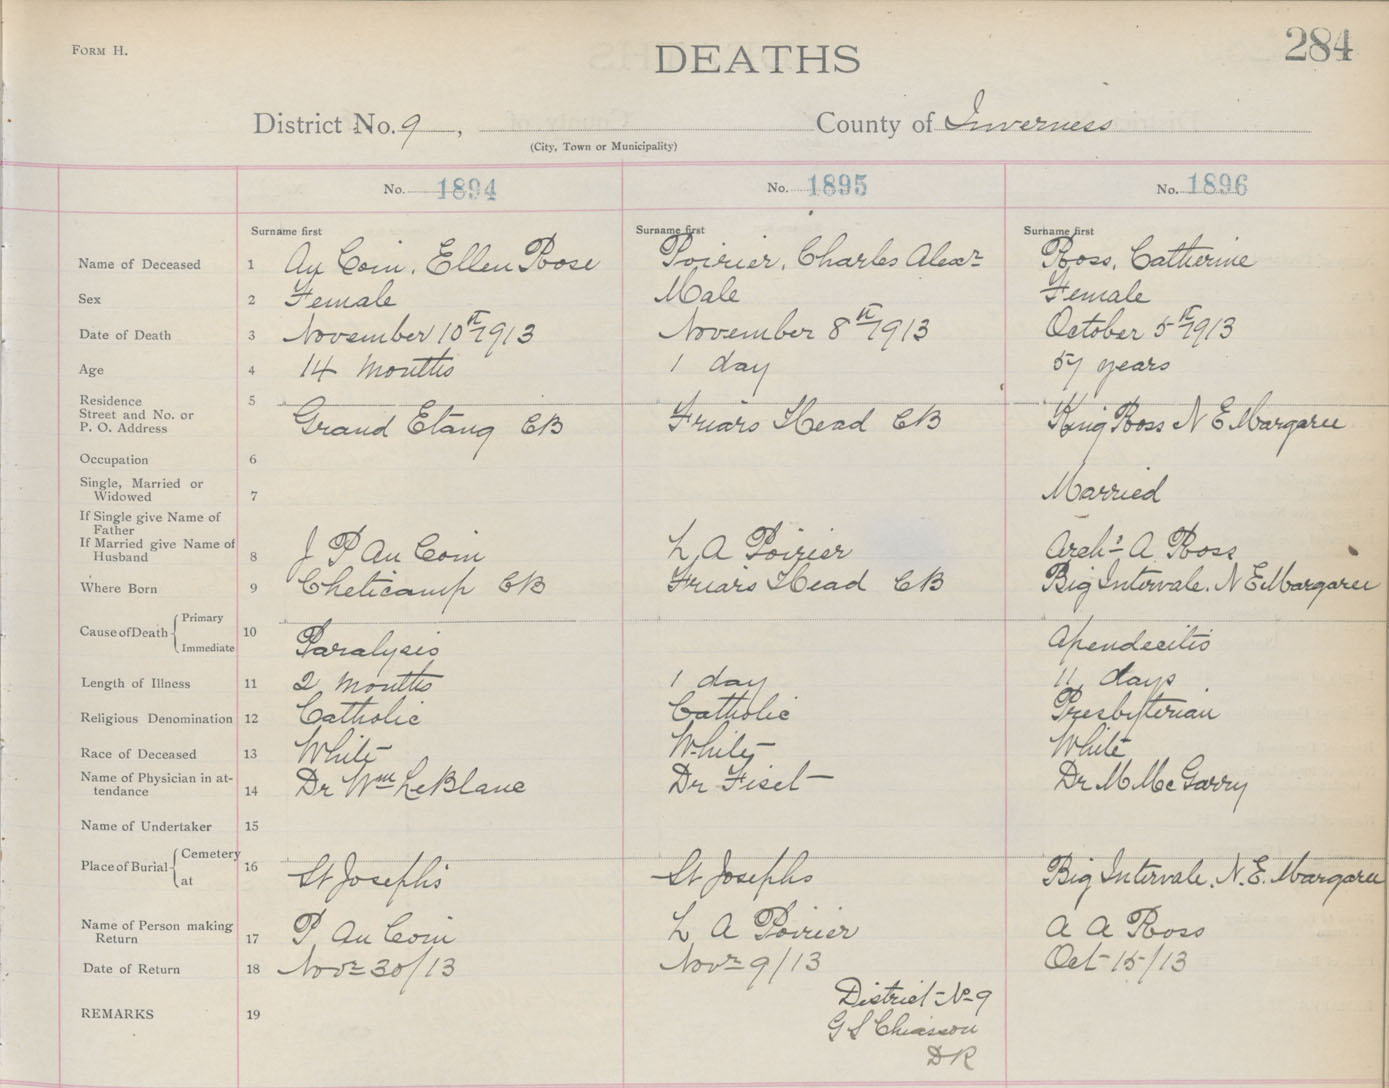 FORM H.
DEATHS
284
District No. 9, County of Inverness
(City, Town or Municipality)
No. 1894 No. 1895 No. 1896
Surname first Surname first Surname first
Name of Deceased 1 Au Coin, Ellen Rose Poirier, Charles Alexr Ross, Catherine
Sex 2 Female Male Female
Date of Death 3 November 10th 1913 November 8th 1913 October 5th 1913
Age 4 14 months 1 day 57 years
Residence 5
Street and No. or
P. O. Address Grand Etang CB Friars Head CB King Ross N E Margaree
Occupation 6
Single, Married or
Widowed 7 Married
If Single give Name of
Father
If Married give Name of
Husband 8 J P Au Coin L A Poirier Archd A Ross
Where Born 9 Cheticamp CB Friars Head CB Big Intervale. N E Margaree
Cause of Death Primary
Immediate 10 Paralysis Apendecitis
Length of Illness 11 2 months 1 day 11 days
Religious Denomination 12 Catholic Catholic Presbyterian
Race of Deceased 13 White White White
Name of Physician in at-
tendance 14 Dr Wm LeBlanc Dr Fiset Dr M McGarry
Name of Undertaker 15
Place of Burial Cemetery
at 16 St Josephs St Josephs Big Intervale. N. E. Margaree
Name of Person making
Return 17 P Au Coin L A Poirier A A Ross
Date of Return 18 Novr 30/13 Novr 9/13 Oct 15/13
REMARKS 19
District No 9
G S Chiasson
DR